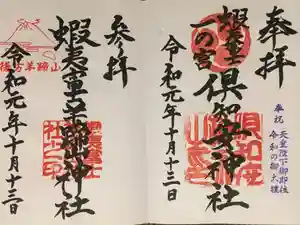 奉拝
蝦夷富士
一の宮
倶知安神社
令和元年十月十三日
奉祝
天皇陛下御即位
令和の御大禮
参拝
蝦夷富士羊蹄神社
令和元年十月十三日
山蹄羊方後